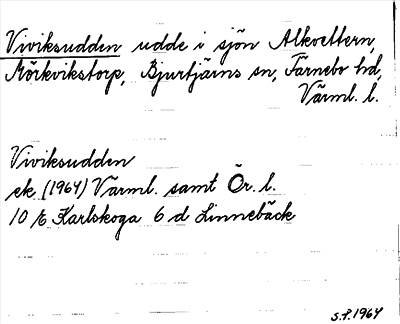 Viviksudden udde i sjön Alkvettern,
Mörkvikstorp, Bjurtjärns sn, Färnebo hd,
Värml. l.
Viviksudden
ek. (1964) Värml. samt Ör. l.
10 E Karlskoga 6 d Linnebäck
S.F. 1964